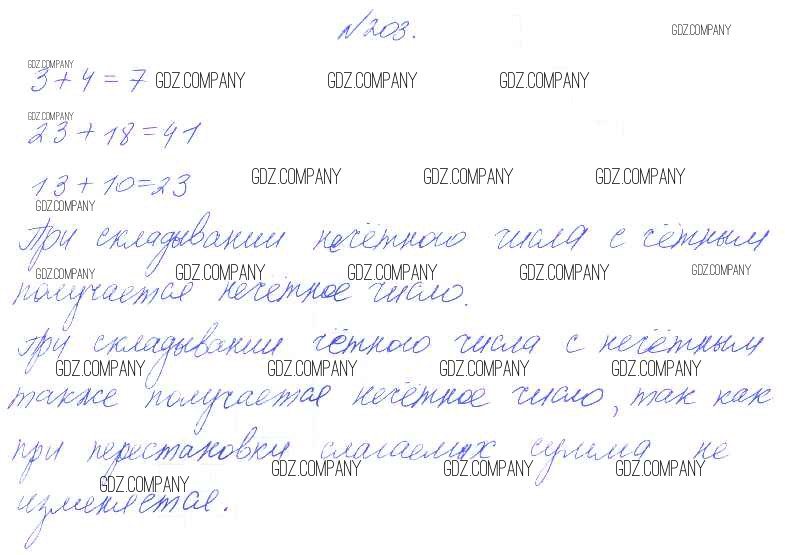 №203.
GDZ.COMPANY
GDZ.COMPANY
3+4=7 GDZ.COMPANY GDZ.COMPANY GDZ.COMPANY
GDZ.COMPANY
23+18=41
13+10=23 GDZ.COMPANY GDZ.COMPANY GDZ.COMPANY
GDZ.COMPANY
При складывании нечётного числа с чётным
GDZ.COMPANY GDZ.COMPANY GDZ.COMPANY GDZ.COMPANY GDZ.COMPANY
получается нечётное число.
При складывании чётного числа с нечётным
GDZ.COMPANY GDZ.COMPANY GDZ.COMPANY GDZ.COMPANY
также получается нечётное число, так как
при перестановки слагаемых сумма не
GDZ.COMPANY GDZ.COMPANY GDZ.COMPANY GDZ.COMPANY
изменяется.